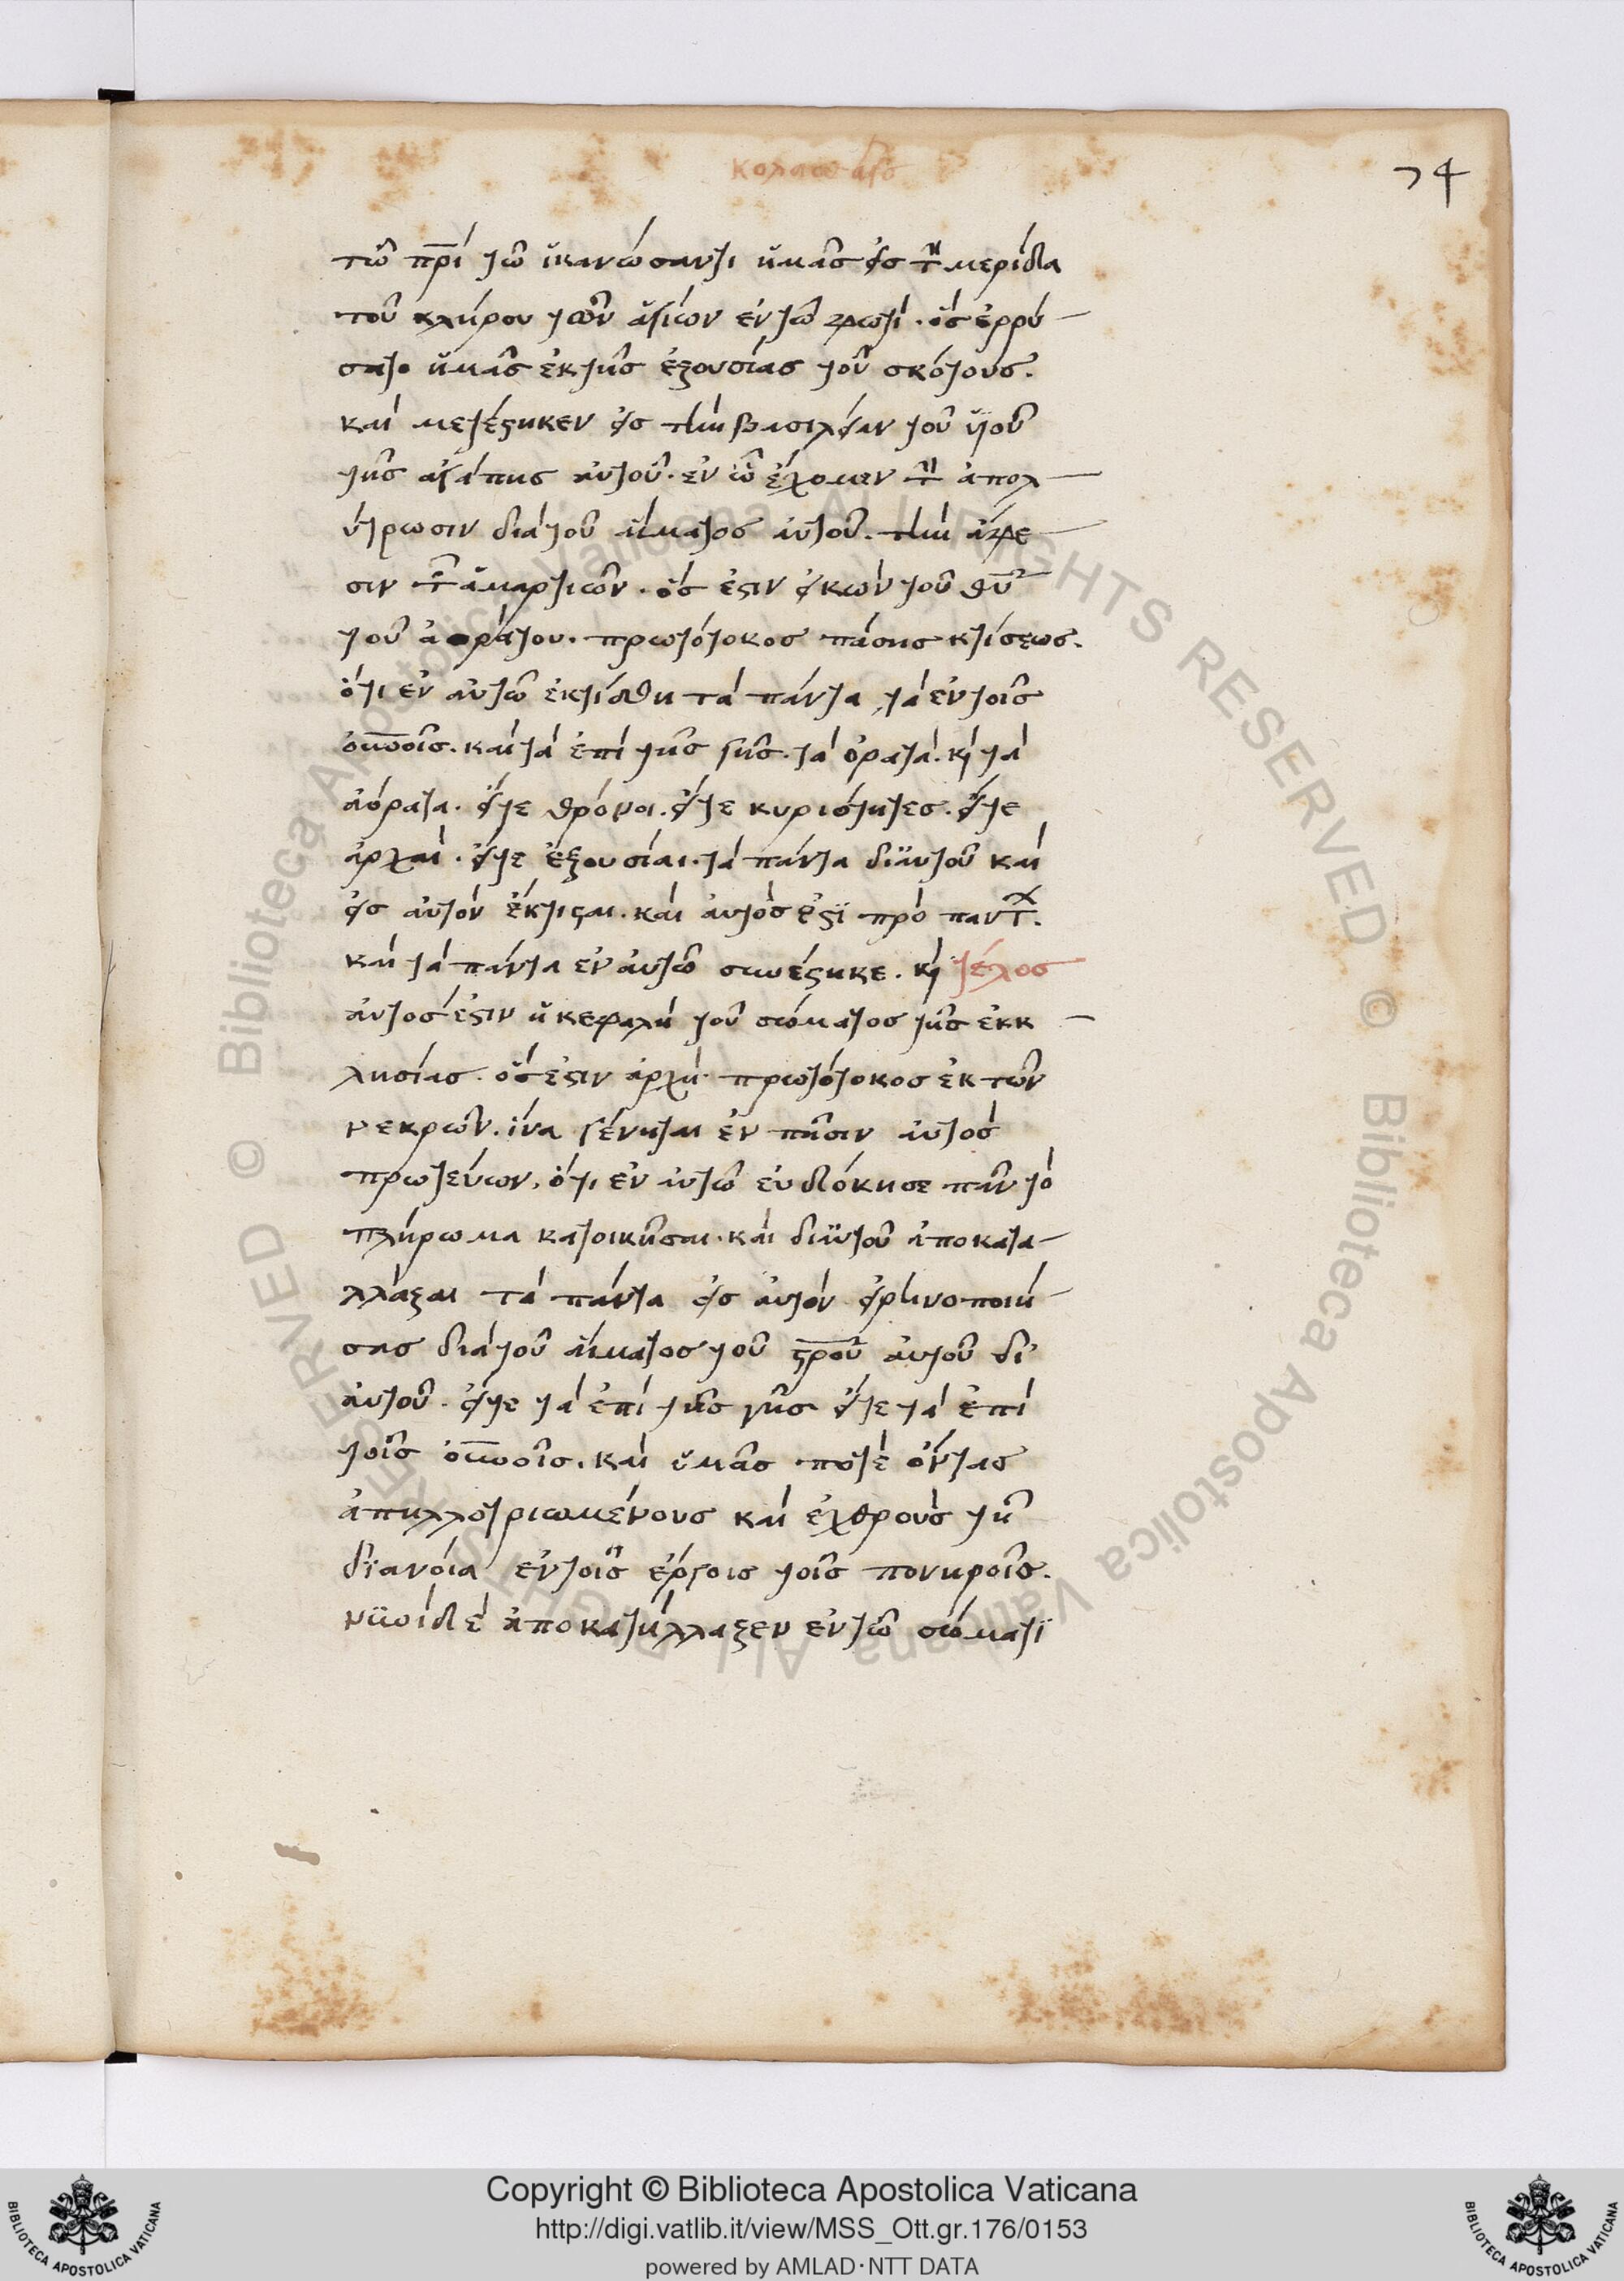 κολασσαεῖς
74
τῶ πρὶ τῶ ἱκανώσαντι ἡμᾶς εἰς τὴν μερίδα
τοῦ κλήρου τῶν ἁγίων ἐν τῶ φωτί. ὃς ἐρρύ
σατο ἡμᾶς ἐκ τῆς ἐξουσίας τοῦ σκότους.
καὶ μετέστηκεν εἰς τὴν βασιλείαν τοῦ ὑϊοῦ
τῆς ἀγάπης αὐτοῦ. ἐν ὧ ἔχομεν τὴν ἀπολ
ύτρωσιν διὰ τοῦ αἵματος αὐτοῦ. τὴν ἄφε
σιν τῶν ἁμαρτιῶν. ὅς ἐστιν εἰκὼν τοῦ θυ
τοῦ ἀοράτου. πρωτότοκος πάσης κτίσεως.
ὅτι ἐν αὐτῶ ἐκτίσθη τὰ πάντα, τὰ ἐν τοῖς
οὐνοῖς. καὶ τὰ ἐπὶ τῆς γῆς. τὰ ὁρατά. κὶ τὰ
ἀόρατα. εἴτε θρόνοι. εἴτε κυριότητες. εἴτε
ἀρχαὶ. εἴτε ἐξουσίαι. τὰ πάντα δι αὐτοῦ καὶ
εἰς αὐτὸν ἔκτισται. καὶ αὐτός ἐστϊ πρὸ παντ.
καὶ τὰ πάντα ἐν αὐτῶ συνέστηκε. κὶ τέλος
αὐτός ἐστιν ἡ κεφαλὴ τοῦ σώματος τῆς ἐκκ
λησίας. ὅς ἐστιν ἀρχὴ. πρωτότοκος ἐκ τῶν
νεκρῶν. ἵνα γένηται ἐν πᾶσιν αὐτὸς
πρωτεύων, ὅτι ἐν αὐτῶ εὐδόκησε πᾶν τὸ
πλήρωμα κατοικῆσαι. καὶ δι αὐτοῦ ἀποκατα
λλάξαι τὰ πάντα εἰς αὐτὸν εἰρηνοποιή
σας διὰ τοῦ αἵματος τοῦ στροῦ αὐτοῦ δι'
αὐτοῦ. εἴτε τὰ ἐπὶ τῆς γῆς εἴτε τὰ ἐπὶ
τοῖς οὐνοῖς. καὶ ὑμᾶς ποτὲ ὄντας
ἀπηλλοτριωμένους καὶ ἐχθροὺς τῆ
δϊανοία ἐν τοῖς ἔργοις τοῖς πονηροῖς.
νϋνὶ δὲ ἀποκατήλλαξεν ἐν τῶ σώματϊ
Copyright © Biblioteca Apostolica Vaticana
http://digi.vatlib.it/view/MSS_Ott.gr.176/0153
powered by AMLAD·NTT DATA